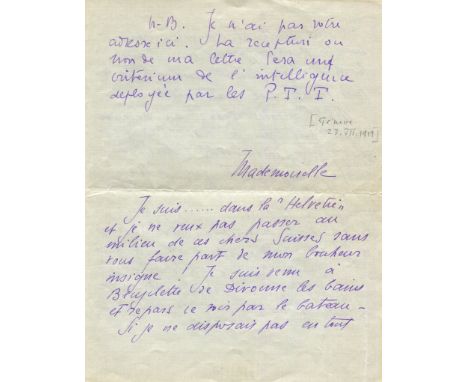 N-B. Je n'ai pas votre
adresse ici. La reception ou
non de ma lettre sera un
critérium de l'intelligence
deployée par les P.T.T.
[Genève
27.VII.1919]
Mademoiselle
Je suis...... dans la "Helvetien
et je ne veux pas passer au
milieu de ces chers Suisses sans
vous faire part de mon bonheur
insigne. Je suis venu à
Bicyclette de Divonne les bains
et repars ce soir par le bateau -
Si je ne disposais pas en tout